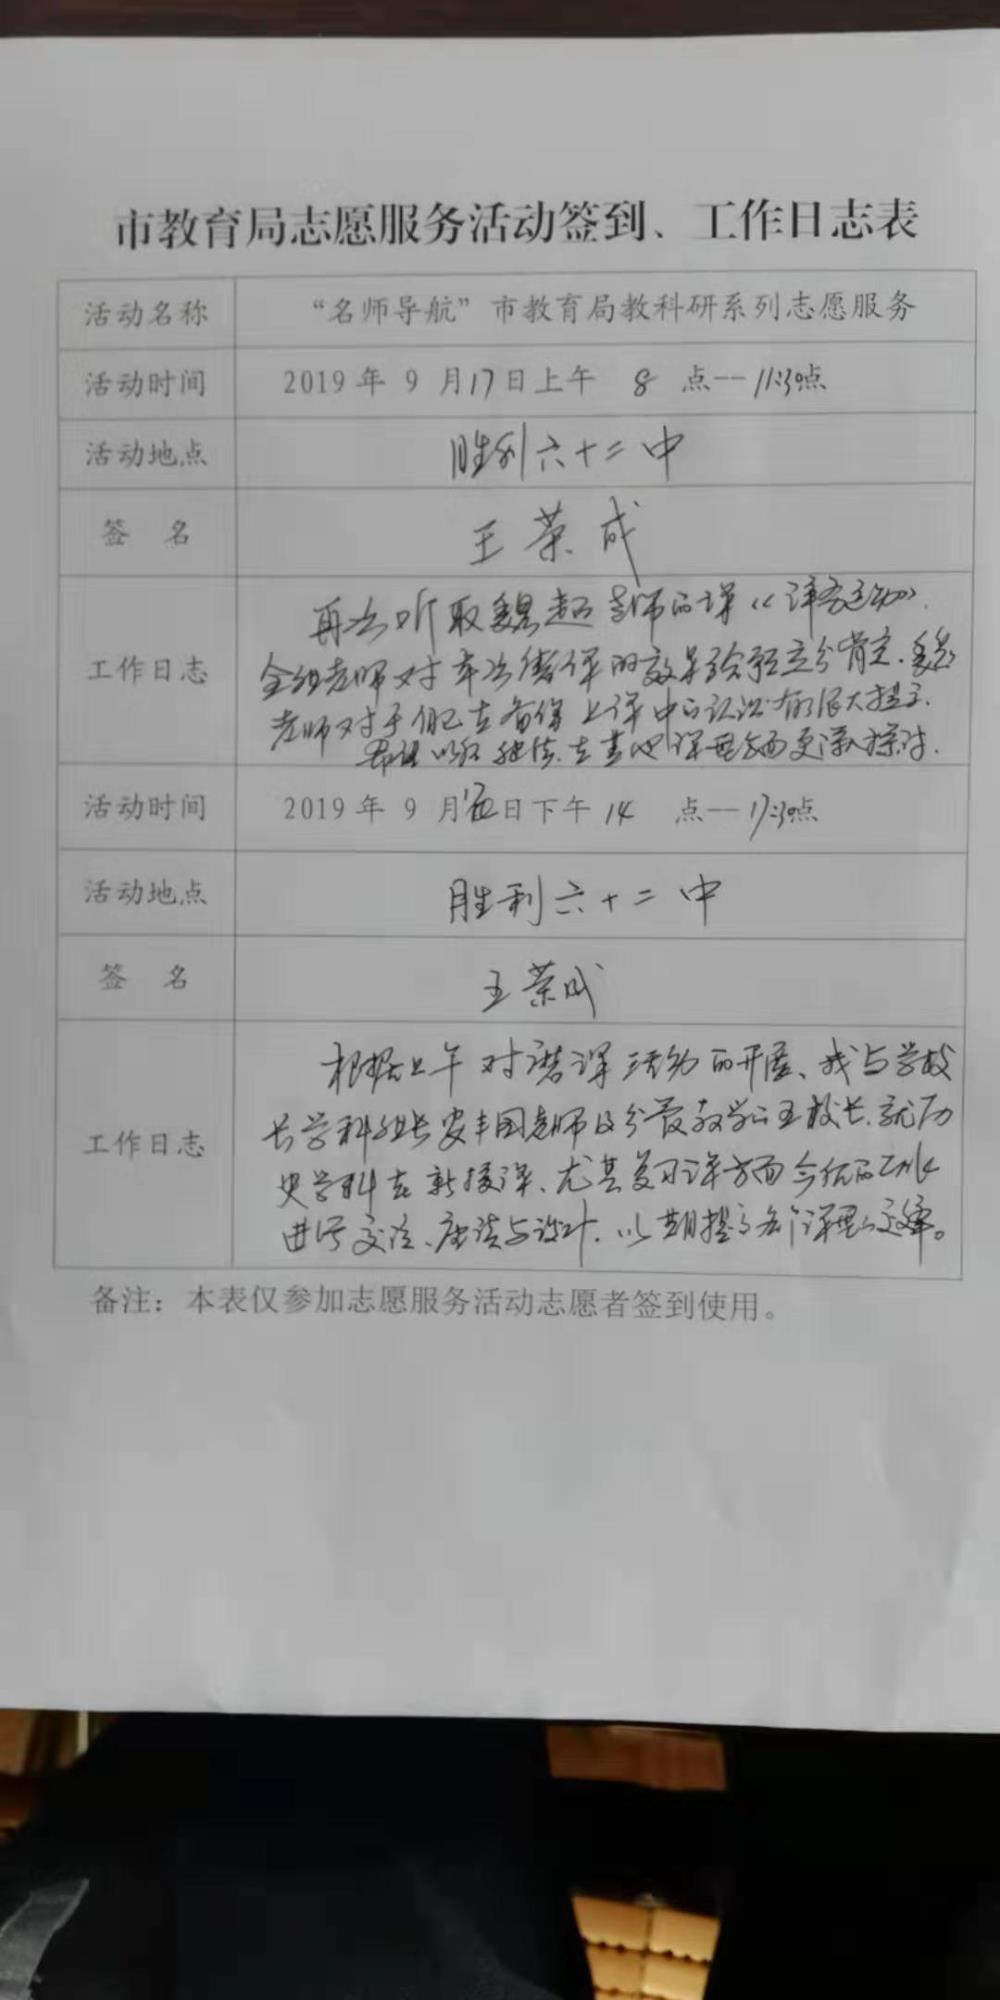 市教育局志愿服务活动签到、工作日志表
活动名称 “名师导航”市教育局教科研系列志愿服务
活动时间 2019年9月17日上午 8 点—11:30点
活动地点 胜利六十二中
签 名 王荣成
再次听取魏超老师的课《洋务运动》.
工作日志 全组老师对本次磨课的效果给予充分肯定.
老师对于自己在备课上课中的认识有很大提高.
希望以后继续在其他课型方面更深入探讨.
活动时间 2019年9月 日下午 14 点—17:30点
活动地点 胜利六十二中
签 名 王荣成
根据上午对磨课活动的开展、我与学校
工作日志 长学科组长安丰国老师及分管教学的王校长,就历
史学科在新授课、尤其复习课方面今后的工作
进行交流、座谈与设计,以期提高各个课型的效率。
备注：本表仅参加志愿服务活动志愿者签到使用。